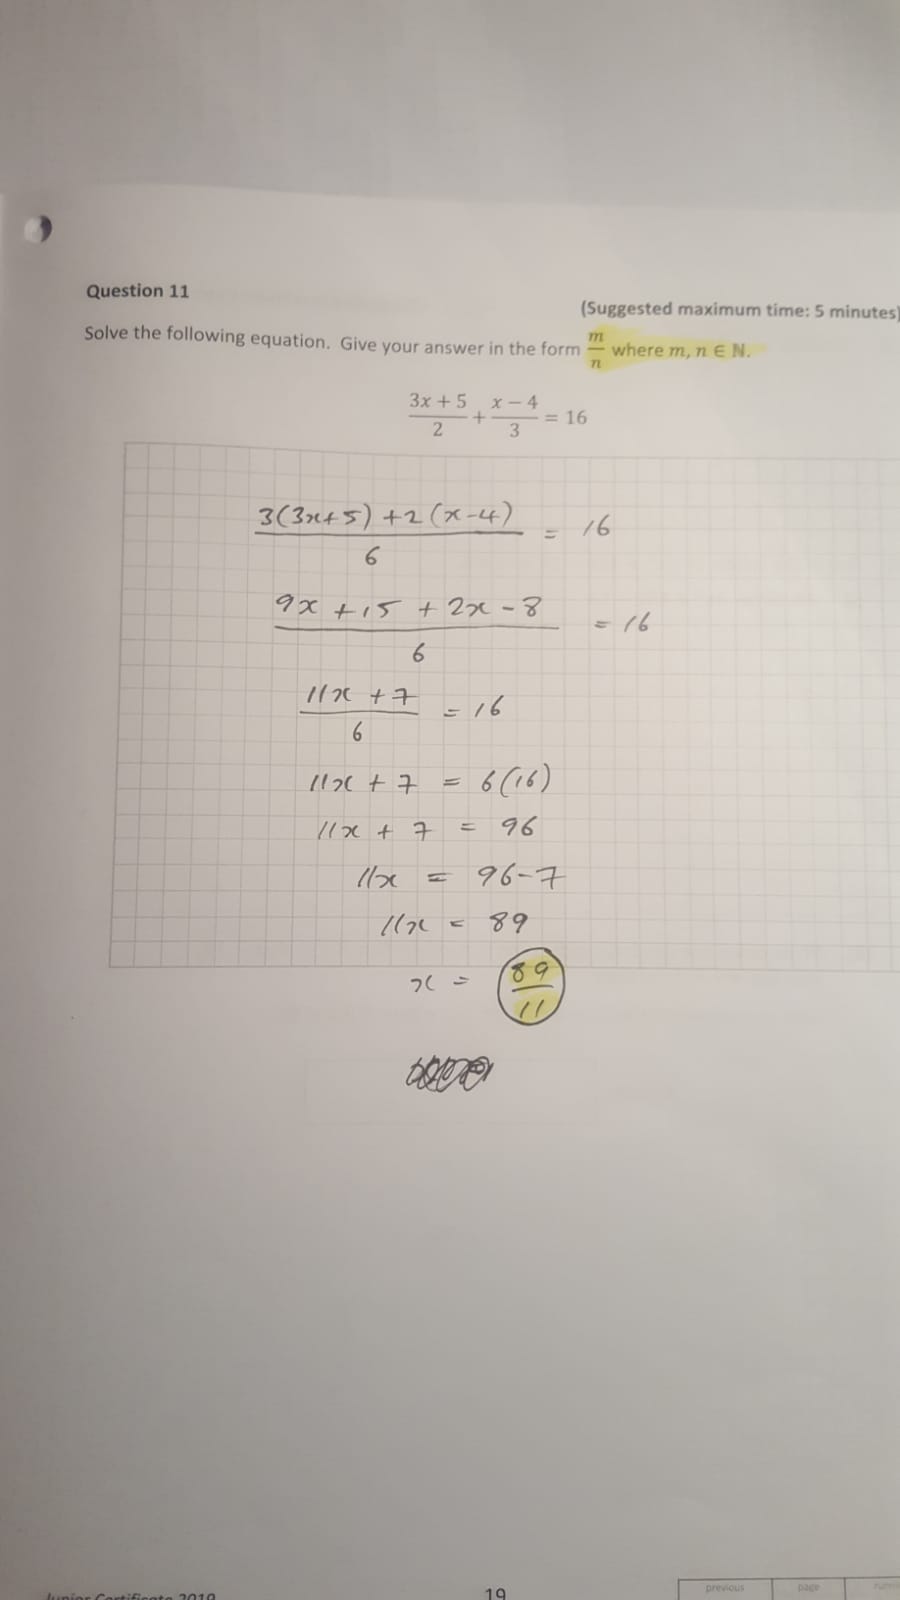 Question 11
(Suggested maximum time: 5 minutes)
Solve the following equation. Give your answer in the form m/n where m, n ∈ ℕ.
(3x + 5)/2 + (x − 4)/3 = 16
(3(3x+5) + 2(x-4))/6 = 16
(9x + 15 + 2x - 8)/6 = 16
(11x + 7)/6 = 16
11x + 7 = 6(16)
11x + 7 = 96
11x = 96-7
11x = 89
x = 89/11
Junior Certificate 2019
19
previous page